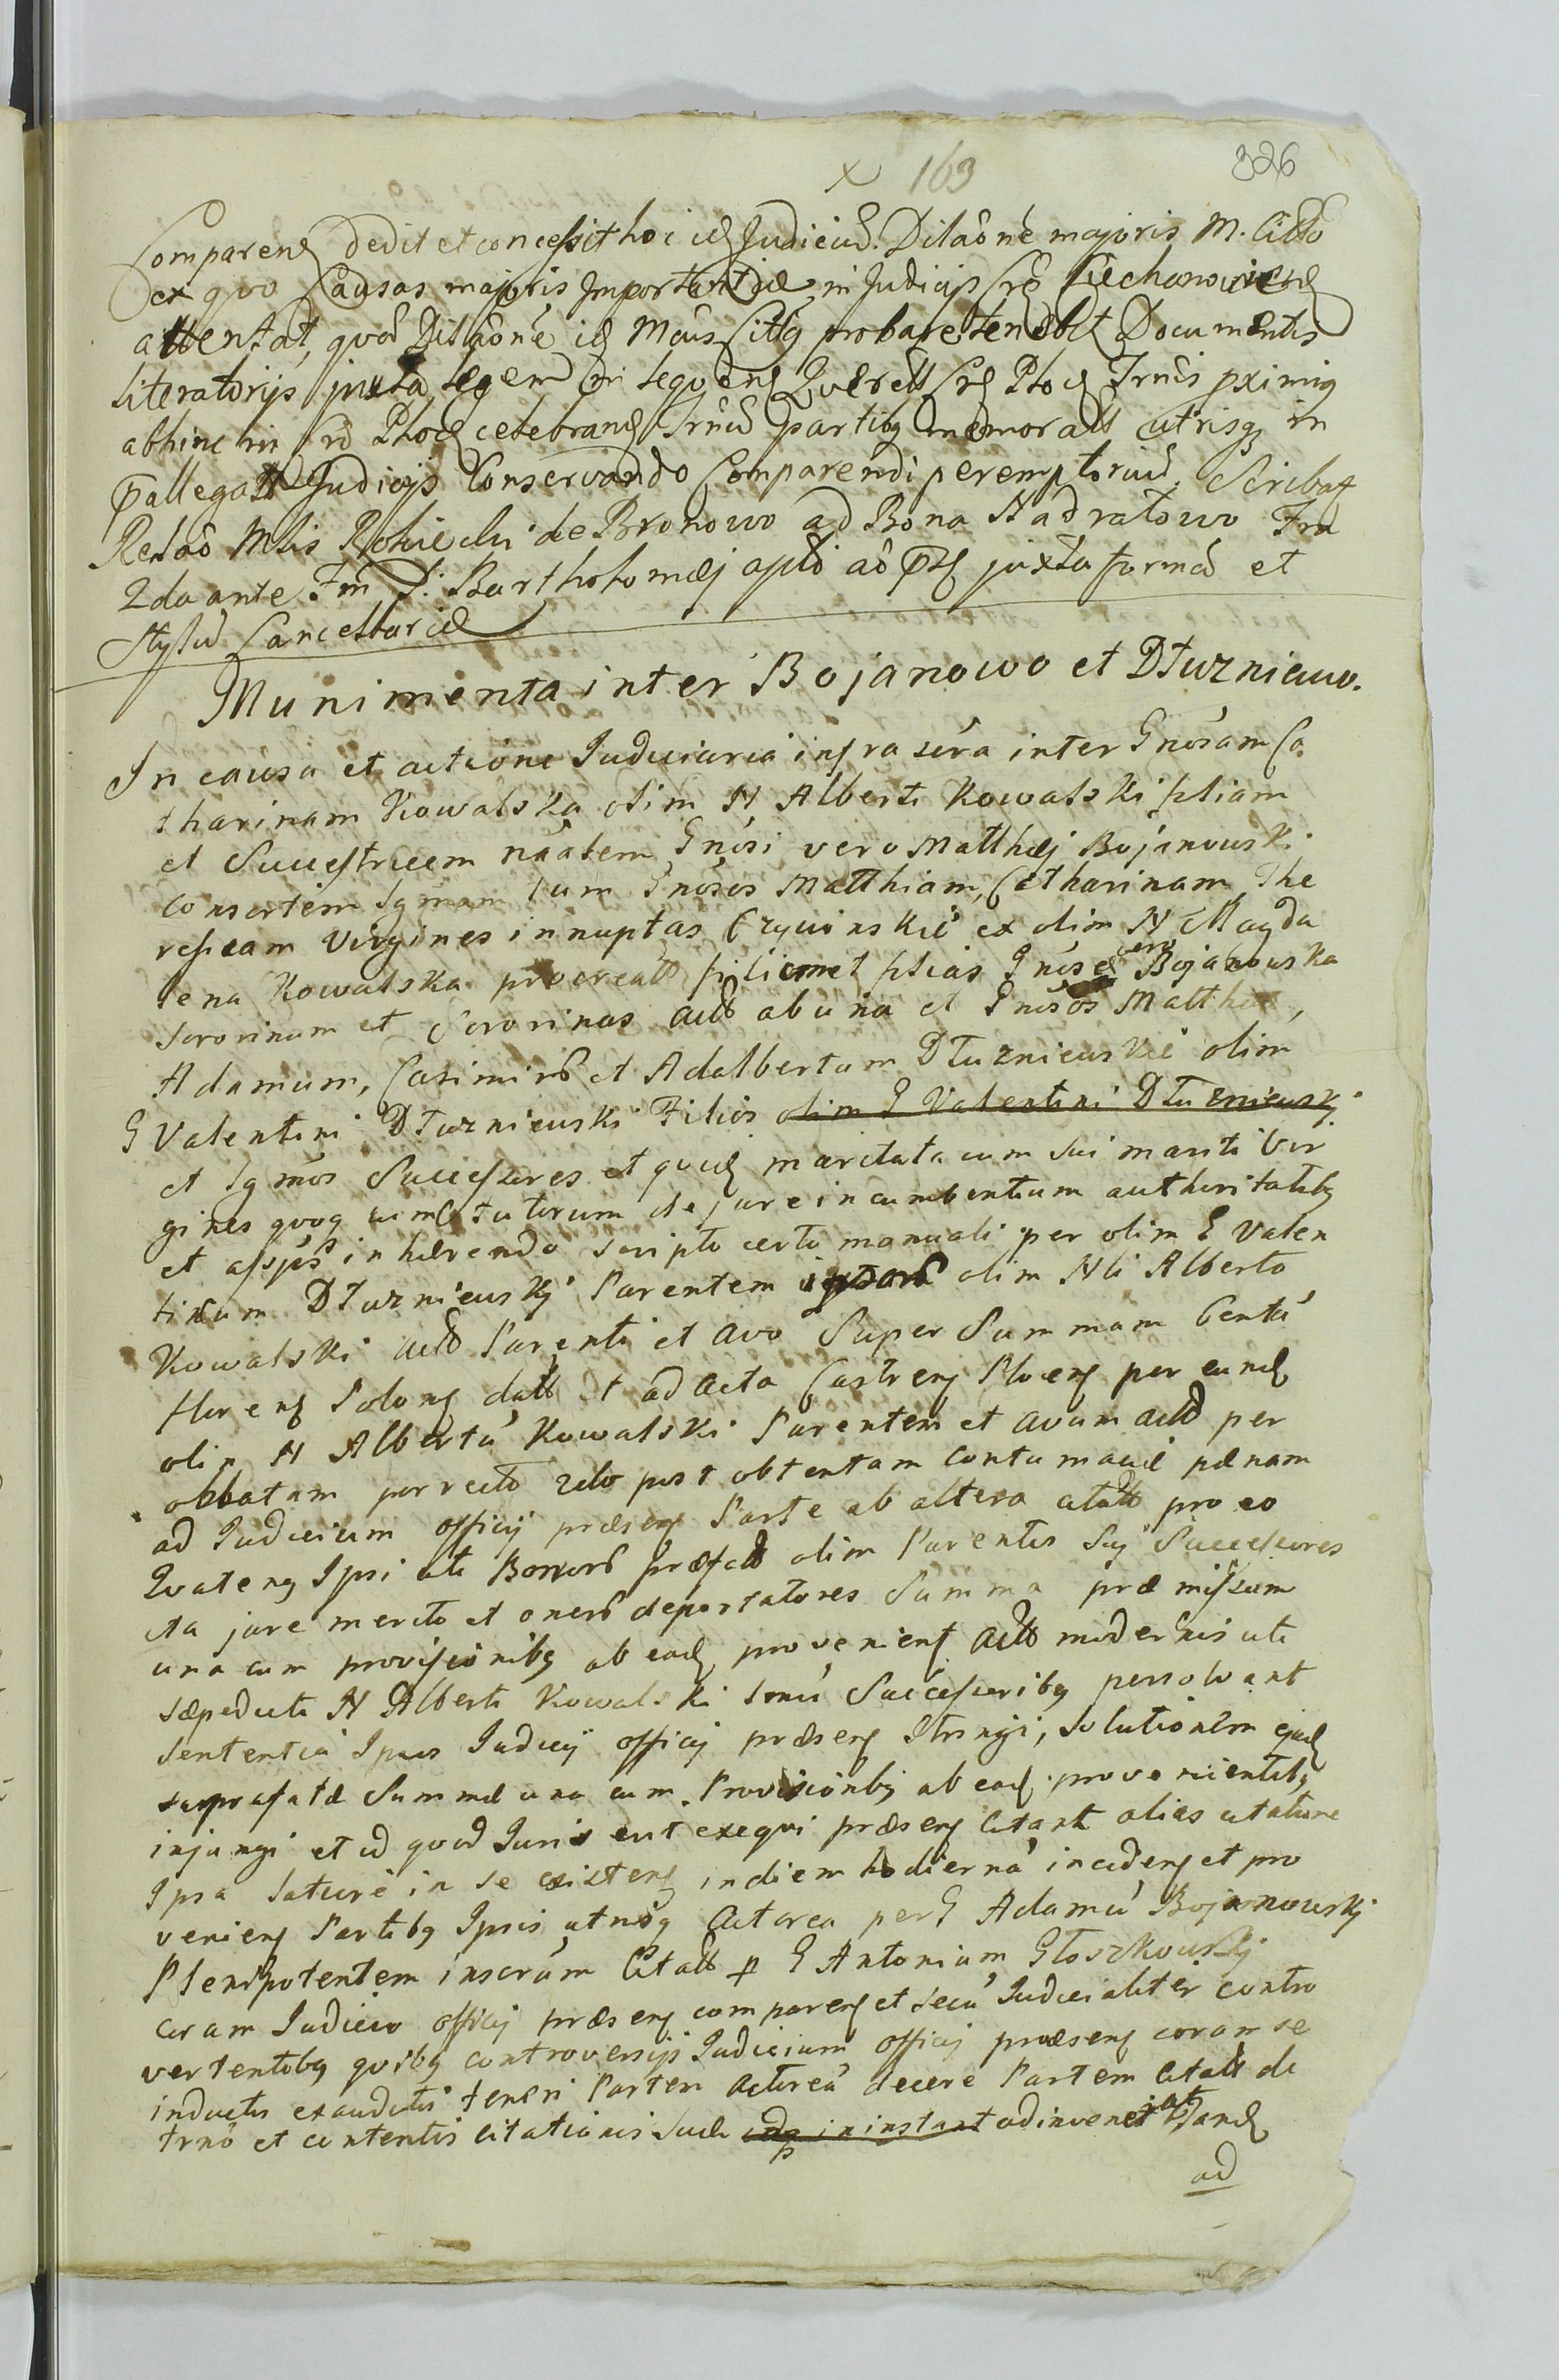 x 163 326
Comparens dedit et concessit hoc id Judiciũ. Dilãone majoris M. Citto
ex quo Causas majoris Importantiæ in Judicijs Crõ Ciechanovien
attentat, quã Dilãone id Mcus Cittg probare tenebit Documentis
Literatorijs juxta legem in sequens Querell Crs Ploc Trnis pximis
abhinc in Crõ Ploc celebrand Trnũ partibg memoratt utrisq in
pallegatt Judicijs Conservando Comparendi peremptoriũ. Scribat
Relão Mtis de Bronowo ad Bona Nadratowo Fra
2da ante Fm S: Bartholomæj apli ão pt juxta formã et
stylũ Cancellariæ
Munimenta inter Bojanowo et Dłuzniewo.
In causa et actione Judiciaria infra scra inter Gnosam Ca
tharinam Kowalska olim N Alberti Kowalski filiam
et Successtricem nãalem Gnosi vero Matthæj Bojanowski
consortem lgmam tum Gnosos Matthiam, Catharinam The
resiam Virgines innuptas Czywinskie ex olim N Magda
lena Kowalska procreatt filium et filias Gnosæ vero Bojanowska
sororinum et Sororinas actt ab una et Gnosos Matthiã,
Adamum, Casimirũ et Adalbertum Dłuzniewskie olim
G Valentini Dłuzniewski Filios olim G Valentini Dłuzniewskj
et lgmos Successores et quid maritata cum sui mariti Vir
gines quoq cum Tutorum de jure incumbentium authoritatibg
et assjis inhærendo scripto certo manuali per olim G Valen
tinum Dłuzniewskj Parentem ipsorũ olim Nli Alberto
Kowalski actt Parenti et avo Super Summam Centũ
floreng Polong datt et ad acta Castreng Ploceng per eund
olim N Albertũ Kowalski Parentem et avum actt per
oblatam porrecto post obtentam contumaciæ pænam
ad Judicium officij præseng Parte ab altera citatt pro eo
Quateng Ipsi uti Bonorũ præfatt olim Parentis Suj Successores
ita jure merito et onerũ deportatores Summa præmissam
una cum provisionibg ab ead provenieng actt modernis uti
sæpedicti N Alberti Kowalski Successoribg persolvant
sententia Ipius Judicij officij præseng stringi, solutionem ejusd
supra fatæ Summæ una cum Provisionibg ab ead provenientibg
injungi et id quod Juris erit exequi præseng citant alias citatione
Ipsa latiore in se existeng in diem hodiernã incideng et pro
venieng Partibg Ipsis utrisq Actorea per G Adamũ Bojanowskj
Plenipotentem inscrum Citatt p G Antonium Głoszkowskj
coram Judicio officij præseng compareng et secũ Judicialiter contro
vertentibg quibg controversijs Judicium officij præseng coram se
inductis exauditis teneri Partem Actoreã docere Partem Citatt de
trno et contentis citationis suæ in instant adinvenit tand
ad